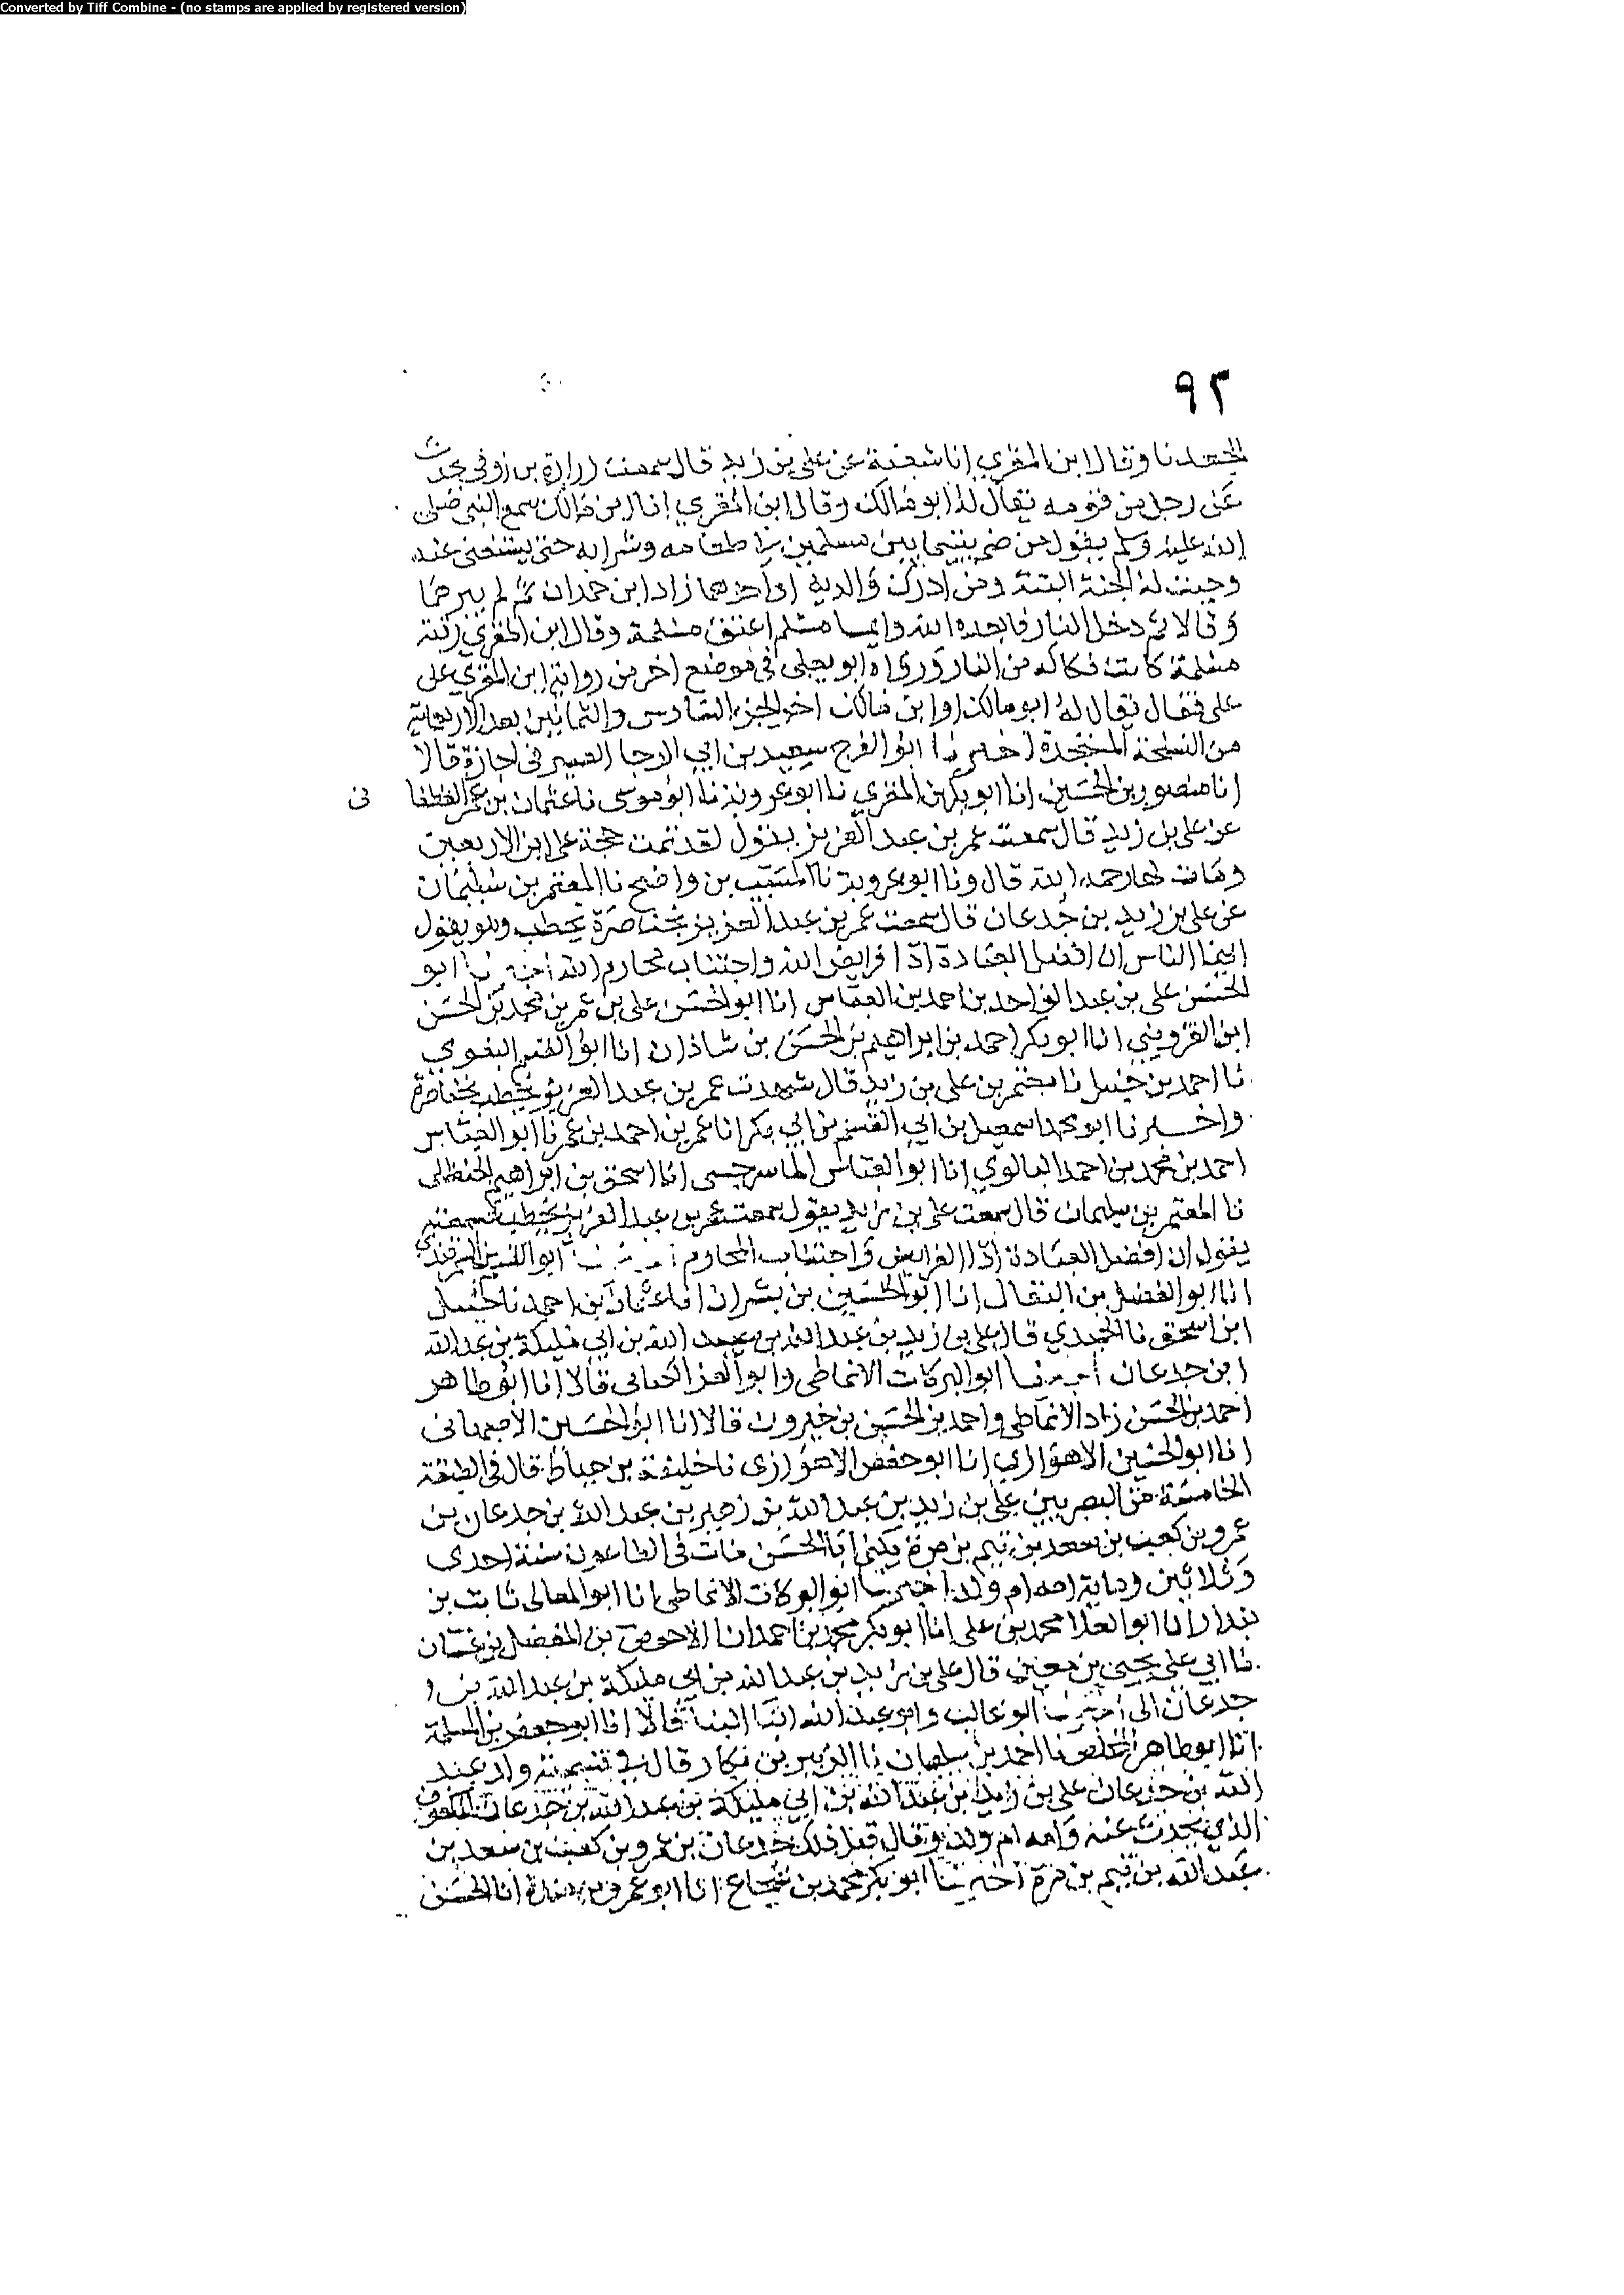 Converted by Tiff Combine - (no stamps are applied by registered version)
٩٢
الجعد نا وقالا ابن المقري انا شعبة عن علي بن زيد قال سمعت زرارة بن اوفى يحدث
عن رجل من قومه يقال له ابو مالك وقال ابن المقري انا ابن مالك سمع النبي صلى
الله عليه وسلم يقول من ضم يتيما بين مسلمين الى طعامه وشرابه حتى يستغني عنه
وجبت له الجنة البتة ومن ادرك والديه او احدهما زاد ابن حمدان ثم لم يبرهما
وقالا ثم دخل النار فابعده الله وايما مسلم اعتق مسلمة وقال ابن المقري رقبة
مسلمة كانت فكاكه من النار ورواه ابو يعلى في موضع اخر من رواية ابن المقري على
على فقال يقال له ابو مالك او ابن مالك اخر الجزء السادس والثمانين بعد الاربعماية
من النسخة اخبرنا ابو الفرج سعيد بن ابي الرجا الصيرفي اجازة قالا
انا منصور بن الحسين انا ابو بكر بن المقري نا ابو عروبة نا ابو موسى نا عثمان بن عمر
عن علي بن زيد قال سمعت عمر بن عبد العزيز يقول لقد تمت حجة على ابن الاربعين
ومات لها رحمه الله قال ونا ابو عروبة نا المسيب بن واضح نا المعتمر بن سليمان
عن علي بن زيد بن جدعان قال سمعت عمر بن عبد العزيز بخناصرة يخطب وهو يقول
ايها الناس ان افضل العبادة اداء فرايض الله واجتناب محارم الله اخبرنا ابو
الحسن علي بن عبد الواحد بن احمد بن العباس انا ابو الحسن علي بن عمر بن محمد بن الحسن
ابن القزويني انا ابو بكر احمد بن ابراهيم بن الحسن بن شاذان انا ابو القسم البغوي
نا احمد بن حنبل نا معتمر بن علي بن زيد قال شهدت عمر بن عبد العزيز يخطب بخناصرة
واخبرنا ابو محمد اسمعيل بن ابي القسم بن ابي بكر انا عمر بن احمد بن عمر نا ابو العباس
احمد بن محمد بن احمد البالوي انا ابو العباس الماسرجسي انا اسحق بن ابراهيم الحنظلي
نا المعتمر بن سليمان قال سمعت علي بن زيد يقول سمعت عمر بن عبد العزيز يخطب
يقول ان افضل العبادة اداء الفرايض واجتناب المحارم اخبرنا ابو القسم بن السمرقندي
انا ابو الفضل بن البقال انا ابو الحسين بن بشران انا عثمان بن احمد نا حنبل
ابن اسحق نا الحميدي قال علي بن زيد بن عبد الله بن عبيد الله بن ابي مليكة بن عبد الله
ابن جدعان اخبرنا ابو البركات الانماطي وابو العز الكيلي قالا انا ابو طاهر
احمد بن الحسن زاد الانماطي واحمد بن الحسين بن خيرون قالا انا ابو الحسين الاصبهاني
انا ابو الحسين الاهوازي انا ابو حفص الاهوازي نا خليفة بن خياط قال في الطبقة
الخامسة من البصريين علي بن زيد بن عبد الله بن زهير بن عبد الله بن جدعان بن
عمرو بن كعب بن سعد بن تيم بن مرة يكنى ابا الحسن مات في الطاعون سنة احدى
وثلاثين وماية امه ام ولد اخبرنا ابو البركات الانماطي انا ابو المعالي ثابت بن
بندار انا ابو العلا محمد بن علي انا ابو بكر محمد بن احمد انا الاحوص بن المفضل بن غسان
نا ابي علي يحيى بن معين قال علي بن زيد بن عبد الله بن ابي مليكة بن عبد الله بن
جدعان الى اخبرنا ابو غالب وابو عبد الله ابنا البنا قالا انا ابو جعفر بن المسلمة
انا ابو طاهر المخلص نا احمد بن سليمان نا الزبير بن بكار قال في تسمية ولد عبد
الله بن جدعان علي بن زيد بن عبد الله بن ابي مليكة بن عبد الله بن جدعان المكفوف
الذي يحدث عنه وامه ام ولد وقال قبل ذلك جدعان بن عمرو بن كعب بن سعد بن
عبد الله بن تيم بن مرة اخبرنا ابو بكر محمد بن شجاع انا ابو عمرو بن منده انا الحسن